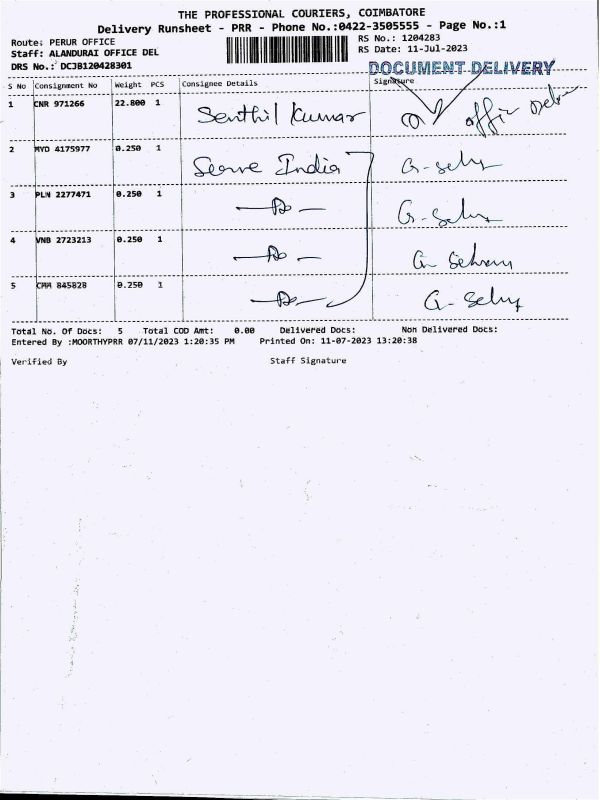 THE PROFESSIONAL COURIERS, COIMBATORE
Delivery Runsheet - PRR - Phone No.:0422-3505555 - Page No.:1
Route: PERUR OFFICE
RS No.: 1204283
Staff: ALANDURAI OFFICE DEL
RS Date: 11-Jul-2023
DRS No.: DCJB120428301
DOCUMENT DELIVERY
S No Consignment No Weight PCS Consignee Details Signature
1 CNR 971266 22.800 1 Senthil Kumar
2 MYD 4175977 0.250 1 Serve India
3 PLN 2277471 0.250 1
4 VNB 2723213 0.250 1
5 CMM 845828 0.250 1
Total No. Of Docs: 5 Total COD Amt: 0.00 Delivered Docs: Non Delivered Docs:
Entered By :MOORTHYPRR 07/11/2023 1:20:35 PM Printed On: 11-07-2023 13:20:38
Verified By Staff Signature